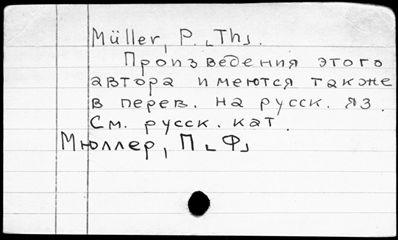 Müller, P. ⌞Th⌟.
Произведения этого
автора имеются также
в перев. на русск. яз.
См. русск. кат.
Мюллер, П ⌞Ф⌟